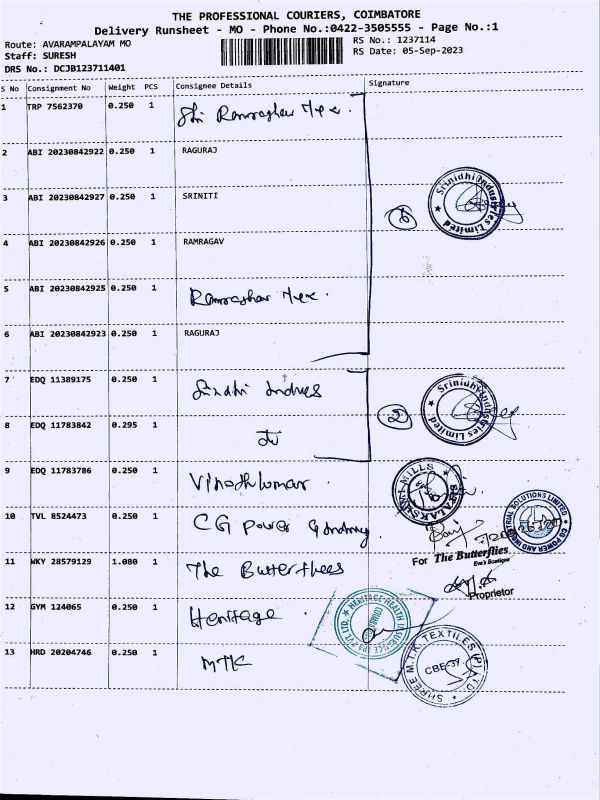 THE PROFESSIONAL COURIERS, COIMBATORE
Delivery Runsheet - MO - Phone No.:0422-3505555 - Page No.:1
Route: AVARAMPALAYAM MO RS No.: 1237114
Staff: SURESH RS Date: 05-Sep-2023
DRS No.: DCJB123711401
S No Consignment No Weight PCS Consignee Details Signature
1 TRP 7562370 0.250 1 Shri Ramraghav Tex.
2 ABI 20230842922 0.250 1 RAGURAJ
3 ABI 20230842927 0.250 1 SRINITI
Srinidhi Industries Limited
6
4 ABI 20230842926 0.250 1 RAMRAGAV
5 ABI 20230842925 0.250 1 Ramraghav Tex.
6 ABI 20230842923 0.250 1 RAGURAJ
7 EDQ 11389175 0.250 1
Srinidhi Industries Limited
2
8 EDQ 11783842 0.295 1
9 EDQ 11783786 0.250 1 Vinothkumar
MILLS
10 TVL 8524473 0.250 1 CG Power
CG POWER AND INDUSTRIAL SOLUTIONS LIMITED
11 WKY 28579129 1.080 1 The Butterflees
For The Butterflies
Eve's Boutique
Proprietor
12 GYM 124065 0.250 1 Heritage
HERITAGE HEALTH INSURANCE TPA PVT. LTD.
13 HRD 20204746 0.250 1 MTK
SHREE M.T.K. TEXTILES (P) LTD.
CBE-37